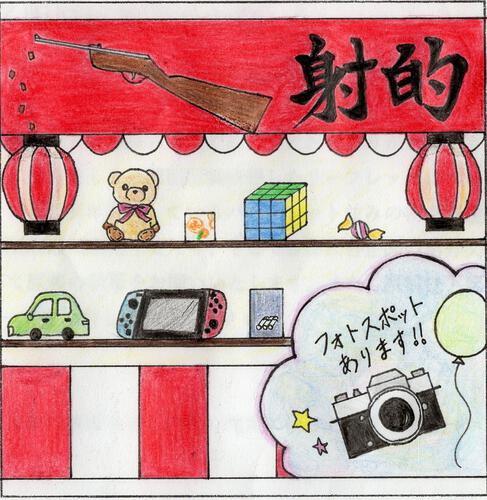 射的
フォトスポット
あります!!